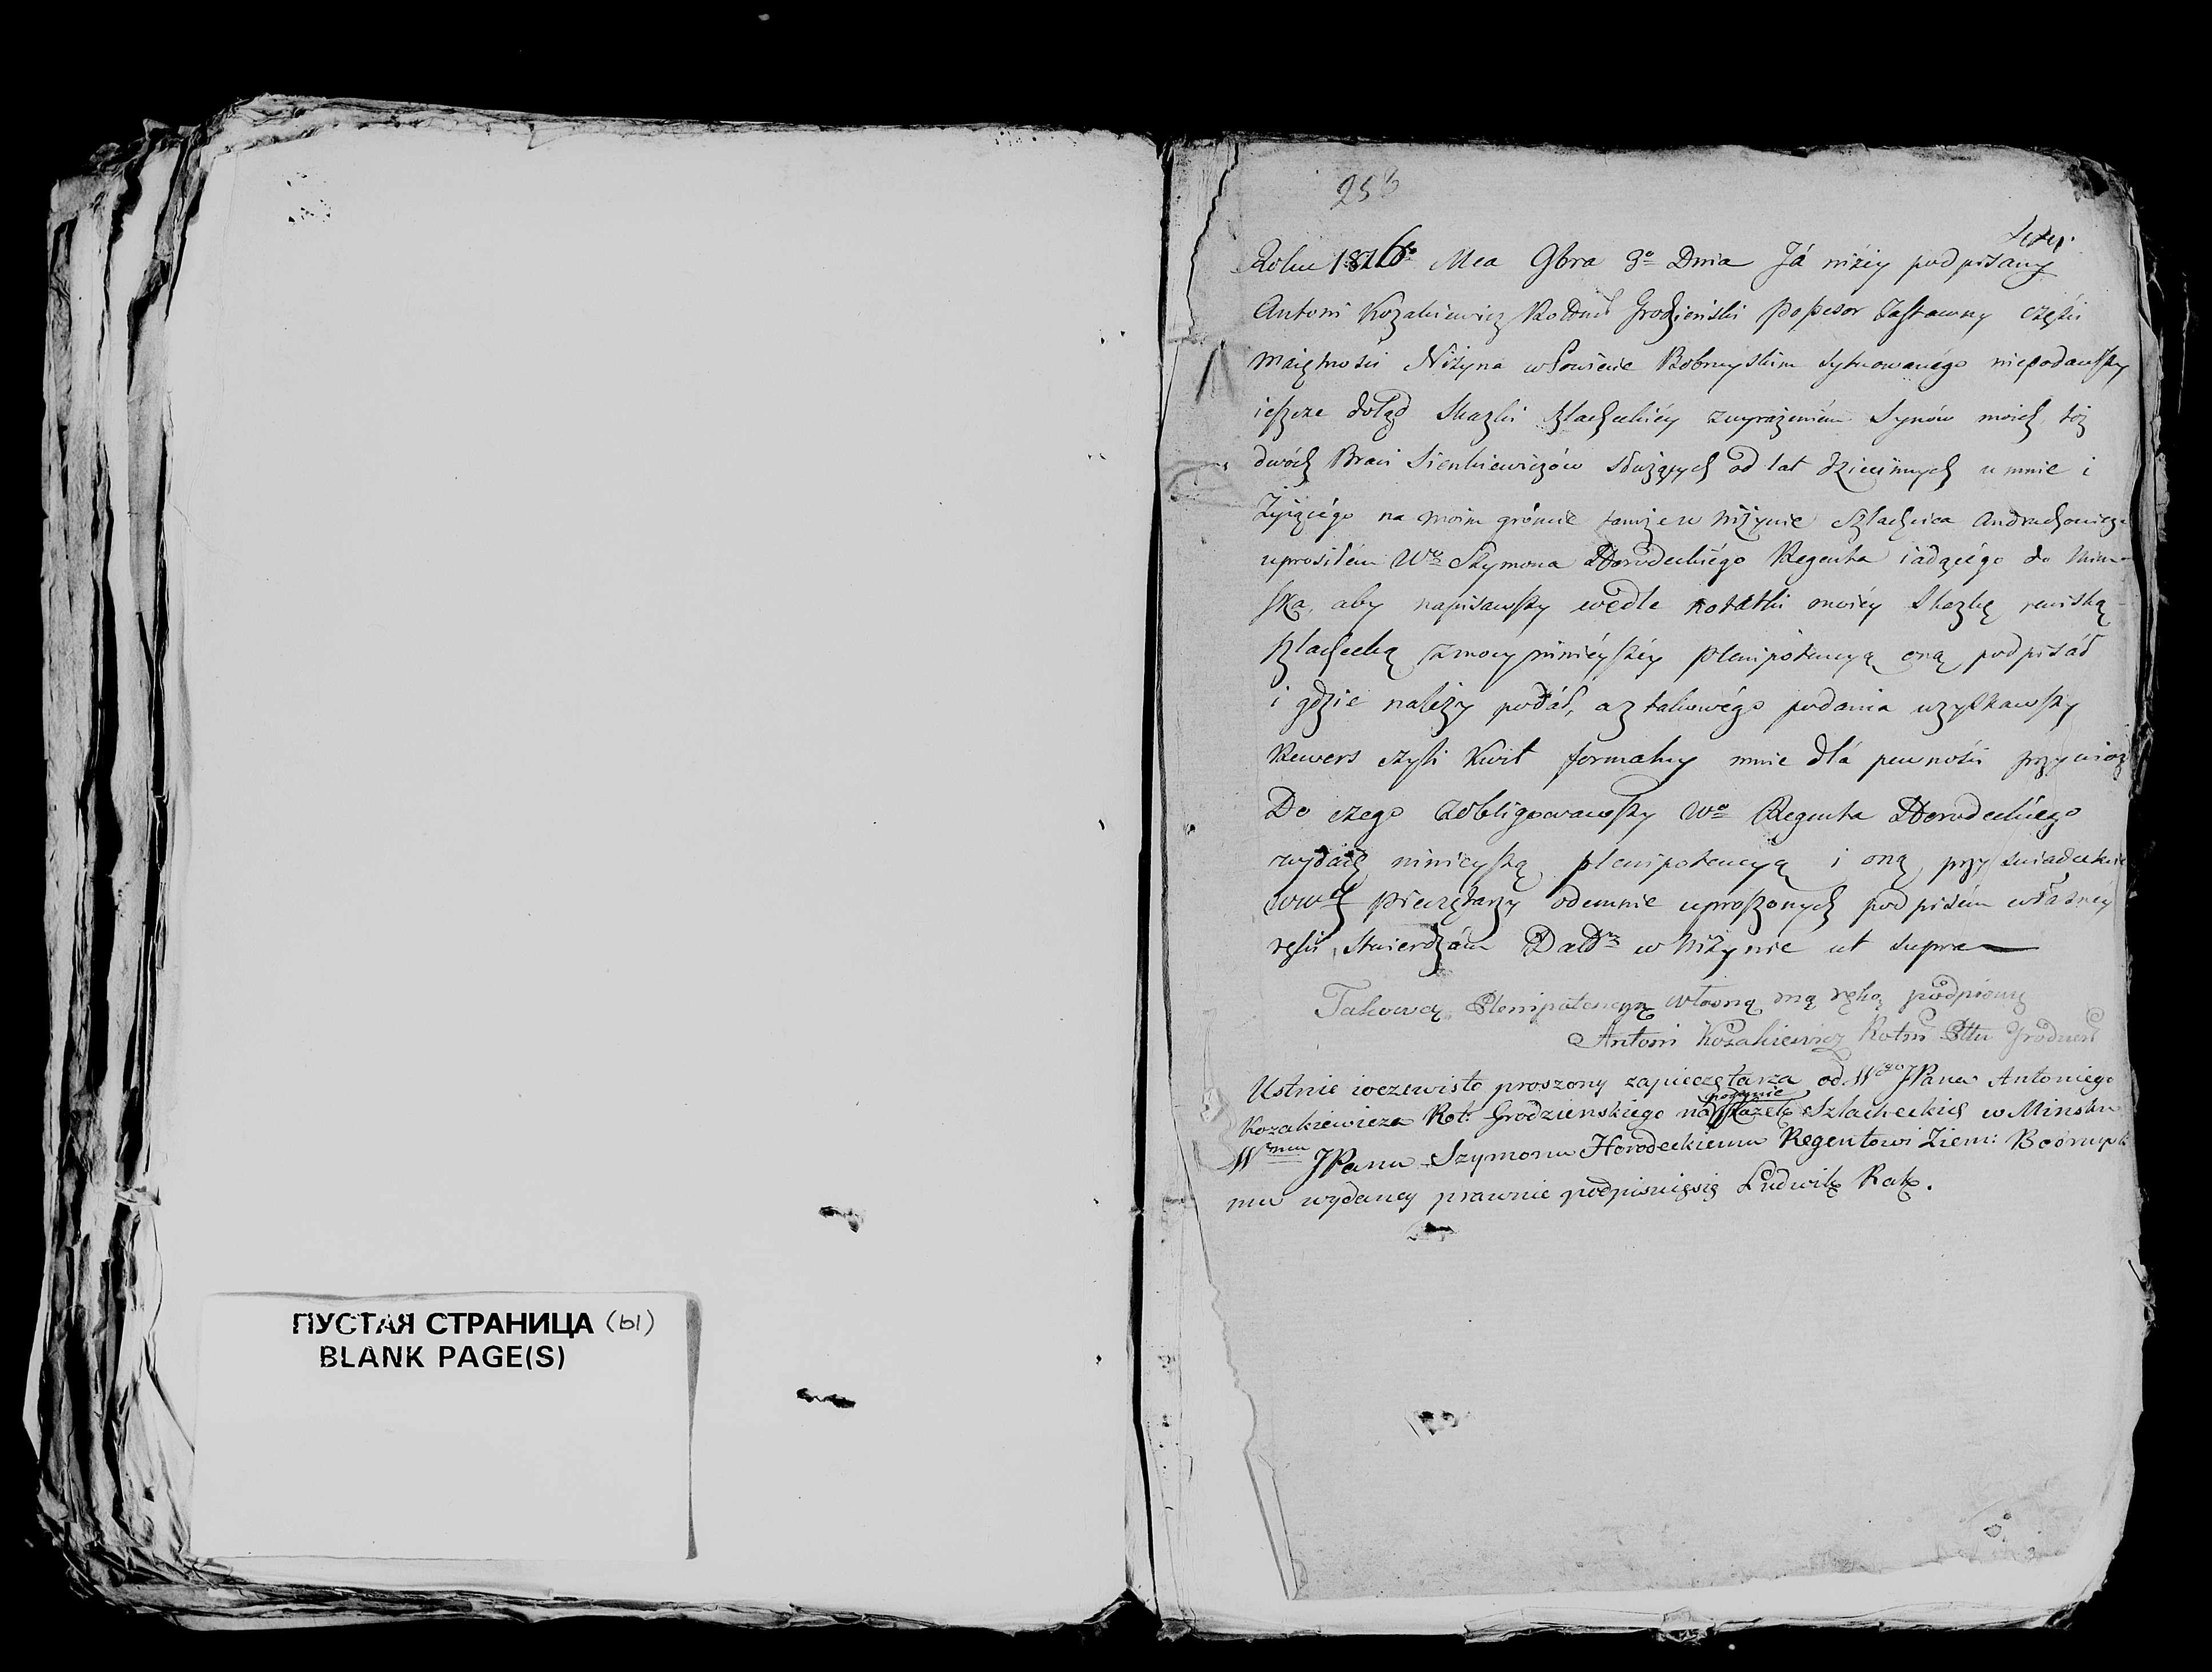 ПУСТАЯ СТРАНИЦА (ы)
BLANK PAGE(S)
258
Roku 1816o Mca 9bra 3o Dnia Já niżéy podpisany
Antoni Kozakiewicz Rottmś Grodzieński Possesor Zastawny części
maiętności Niżyna w Powiecie Bobruyskim sytuowanégo niepodawszy
ieszcze dotąd Skazki szlacheckiéy zwyrażeniém Synów moich, téż
dwóch Braci Sienkiewiczów służących od lat dziecinnych u mnie i
Żyiącégo na moim gróncie tamże w Niżynie Szlachcica Andruchowicza
uprosiłem Wo Szymona Horodeckiégo Regenta iadącégo do Miń-
ska, aby napisawszy wedle notatki mojéy Skazkę rewiską
szlachecką zmocy ninieyszéy plenipotencyą oną podpisáł
i gdzie należy podáł, a z takowégo podania uzyskawszy
Rewers czyli Kwit formalny mnie dlá pewności przywióz
Do czego zobligowawszy Wo Regenta Horodeckiego
wydaię ninieyszą plenipotencyą i oną przy świadectwie
WWch Pieczętarzy odemnie uproszonych podpisém własnéy
ręki stwierdzám Datt w Niżynie ut supra
Takową Plenipotencyą własną mą ręką podpisuię
Antoni Kozakiewicz Rotm Pttu Grodzień
Ustnie ioczewisto proszony zapieczętarza od Wgo JPana Antoniego
Kozakiewicza Rot: Grodzienskiego na podanie Skazek Szlacheckich w Minsku
Wmu JPanu Szymonu Horodeckiemu Regentowi Ziem: Bobruysk
mu wydaney prawnie podpisuięsię Ludwik Rak.